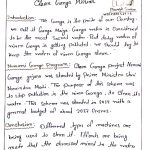 Clean Ganga Mission
Introduction: The Ganga is the pride of our Country.
we call if Ganga Maiya Ganga water is Considered
to be the most Sacred water. But today water of
river Ganga is getting polluted we should try to
keep the water of river Ganga clean.
Namami Gange Program: Clean Ganga project Namami
Gange yojana was started by Prime Minister Shri
Narendra Modi. The Purpose of this Scheme was
to stop pollution in the river Ganga. to clean its
water. This Scheme was started in 2014 with a
general budget of about 2037 Crores.
Conclusion: Different types of machines are
being used to clean it. Efforts are being
made that the chemical mixed in the water